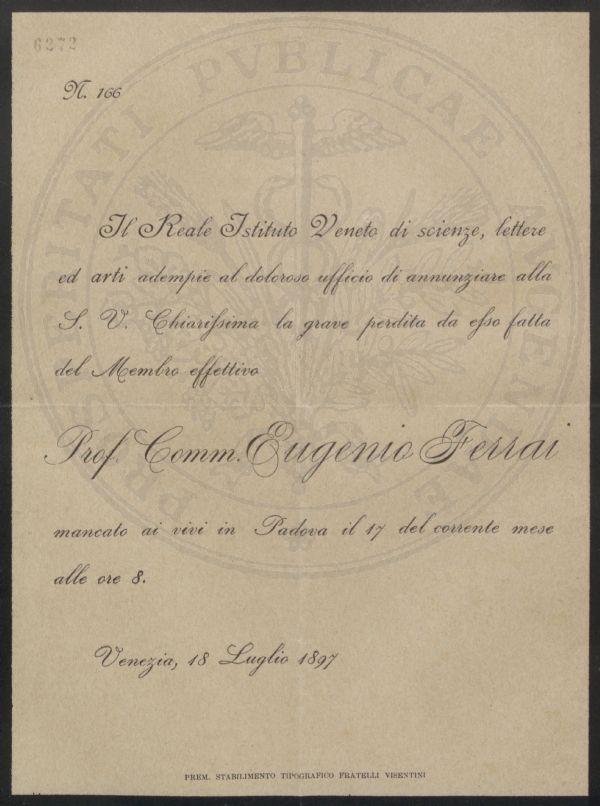 6272
N. 166
Il Reale Istituto Veneto di scienze, lettere
ed arti adempie al doloroso ufficio di annunziare alla
S. V. Chiarissima la grave perdita da esso fatta
del Membro effettivo
Prof. Comm. Eugenio Ferrai
mancato ai vivi in Padova il 17 del corrente mese
alle ore 8.
Venezia, 18 Luglio 1897
PREM. STABILIMENTO TIPOGRAFICO FRATELLI VISENTINI
PROSPERITATI PVBLICAE AVGENDAE